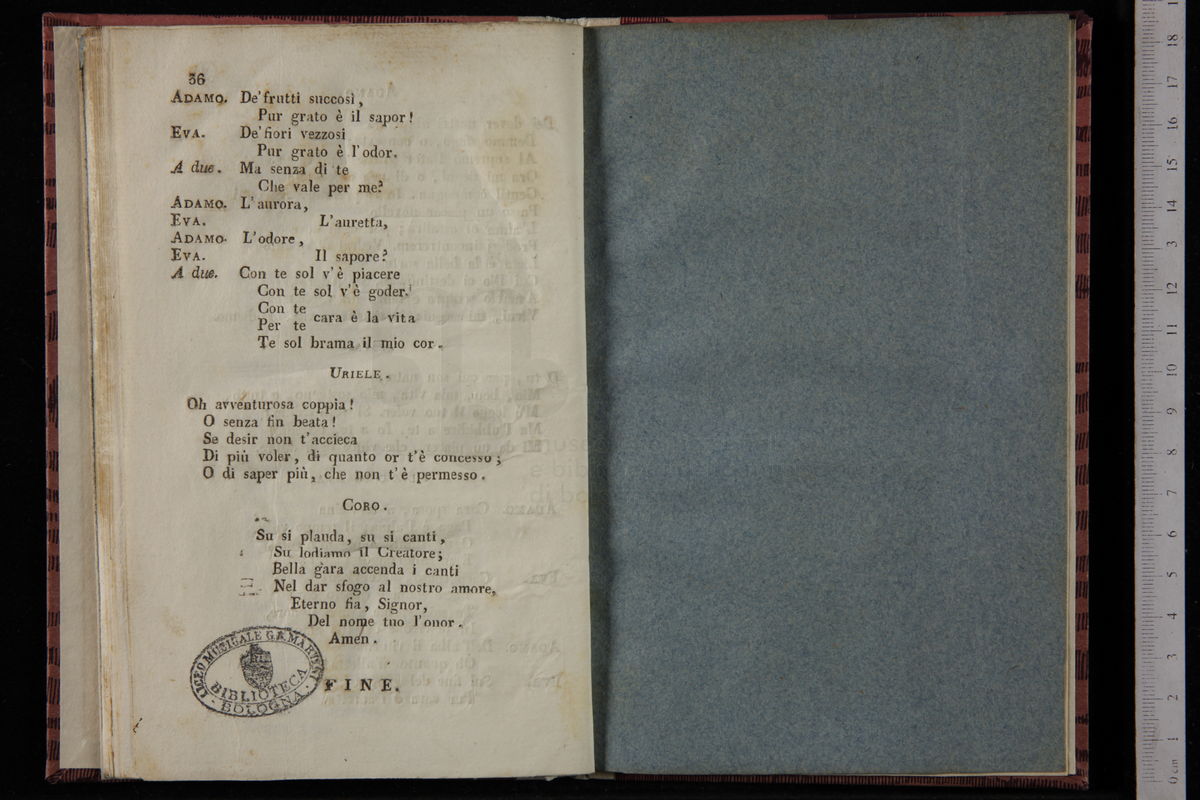 36
ADAMO. De'frutti succosi,
Pur grato è il sapor!
EVA. De'fiori vezzosi
Pur grato è l'odor.
A due. Ma senza di te
Che vale per me?
ADAMO. L'aurora,
EVA. L'auretta,
ADAMO. L'odore,
EVA. Il sapore?
A due. Con te sol v'è piacere
Con te sol v'è goder.
Con te
Per te cara è la vita
Te sol brama il mio cor.
URIELE.
Oh avventurosa coppia!
O senza fin beata!
Se desir non t'accieca
Di più voler, di quanto or t'è concesso;
O di saper più, che non t'è permesso.
CORO.
Su si plauda, su si canti,
Su lodiamo il Creatore;
Bella gara accenda i canti
Nel dar sfogo al nostro amore,
Eterno fia, Signor,
Del nome tuo l'onor.
Amen.
FINE.
LICEO MUSICALE G.B. MARTINI
BIBLIOTECA
BOLOGNA
18
17
16
15
14
3
12
11
10
9
8
7
6
5
4
3
2
1
0 cm